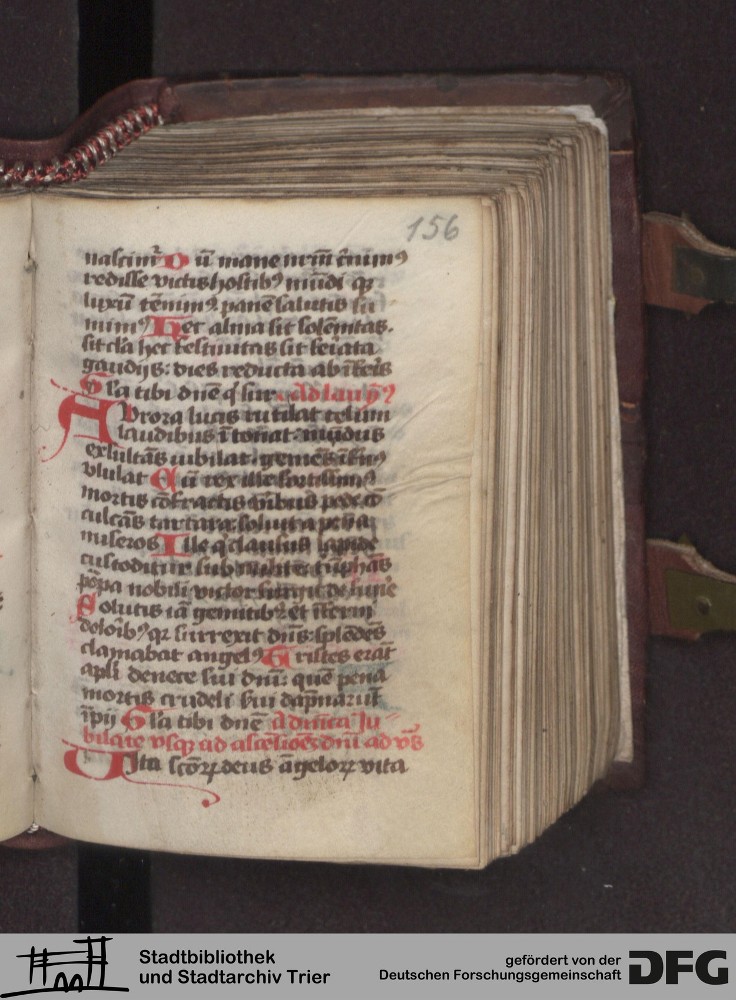 156
nascim̄ Dū mane m̄ m̄ c̄nim⁹
redisse victis hostib⁹ mūdi qꝫ
luxū tēnim⁹ panē salutis su
mim⁹ Hec alma sit solēnitas.
sit cla hec festiuitas sit feriata
gaudijs: dies reducta ab īferis
Gla tibi dnē q̇ sur Ad lau
AVrora lucis rutilat celum
laudibus ītonat: mūdus
exultās iubilat: gemēs īfn⁹
vlulat Cū rex ille fortissim⁹
mortis cōfractis viribus pede cō
culcās tartara: soluit a pena
miseros Ille q̇ clausus lapide
custoditur sub milite: triūphās
pōpa nobili victor surgit de fune
Solutis iā gemitib⁹ et īferni
dolorib⁹ qꝛ surrexit dn̄s: splēdēs
clamabat angel⁹ Tristes erāt
apli denece sui dn̄i: quē pena
mortis crudeli serui dāpnarūt
īpij Gla tibi dnē Ad iſta Iu
bilate vsqꝫ ad ascēsionē dn̄i ad v̄s
VIta scōꝝ deus āgeloꝝ vita
Stadtbibliothek
und Stadtarchiv Trier
gefördert von der
Deutschen Forschungsgemeinschaft
DFG